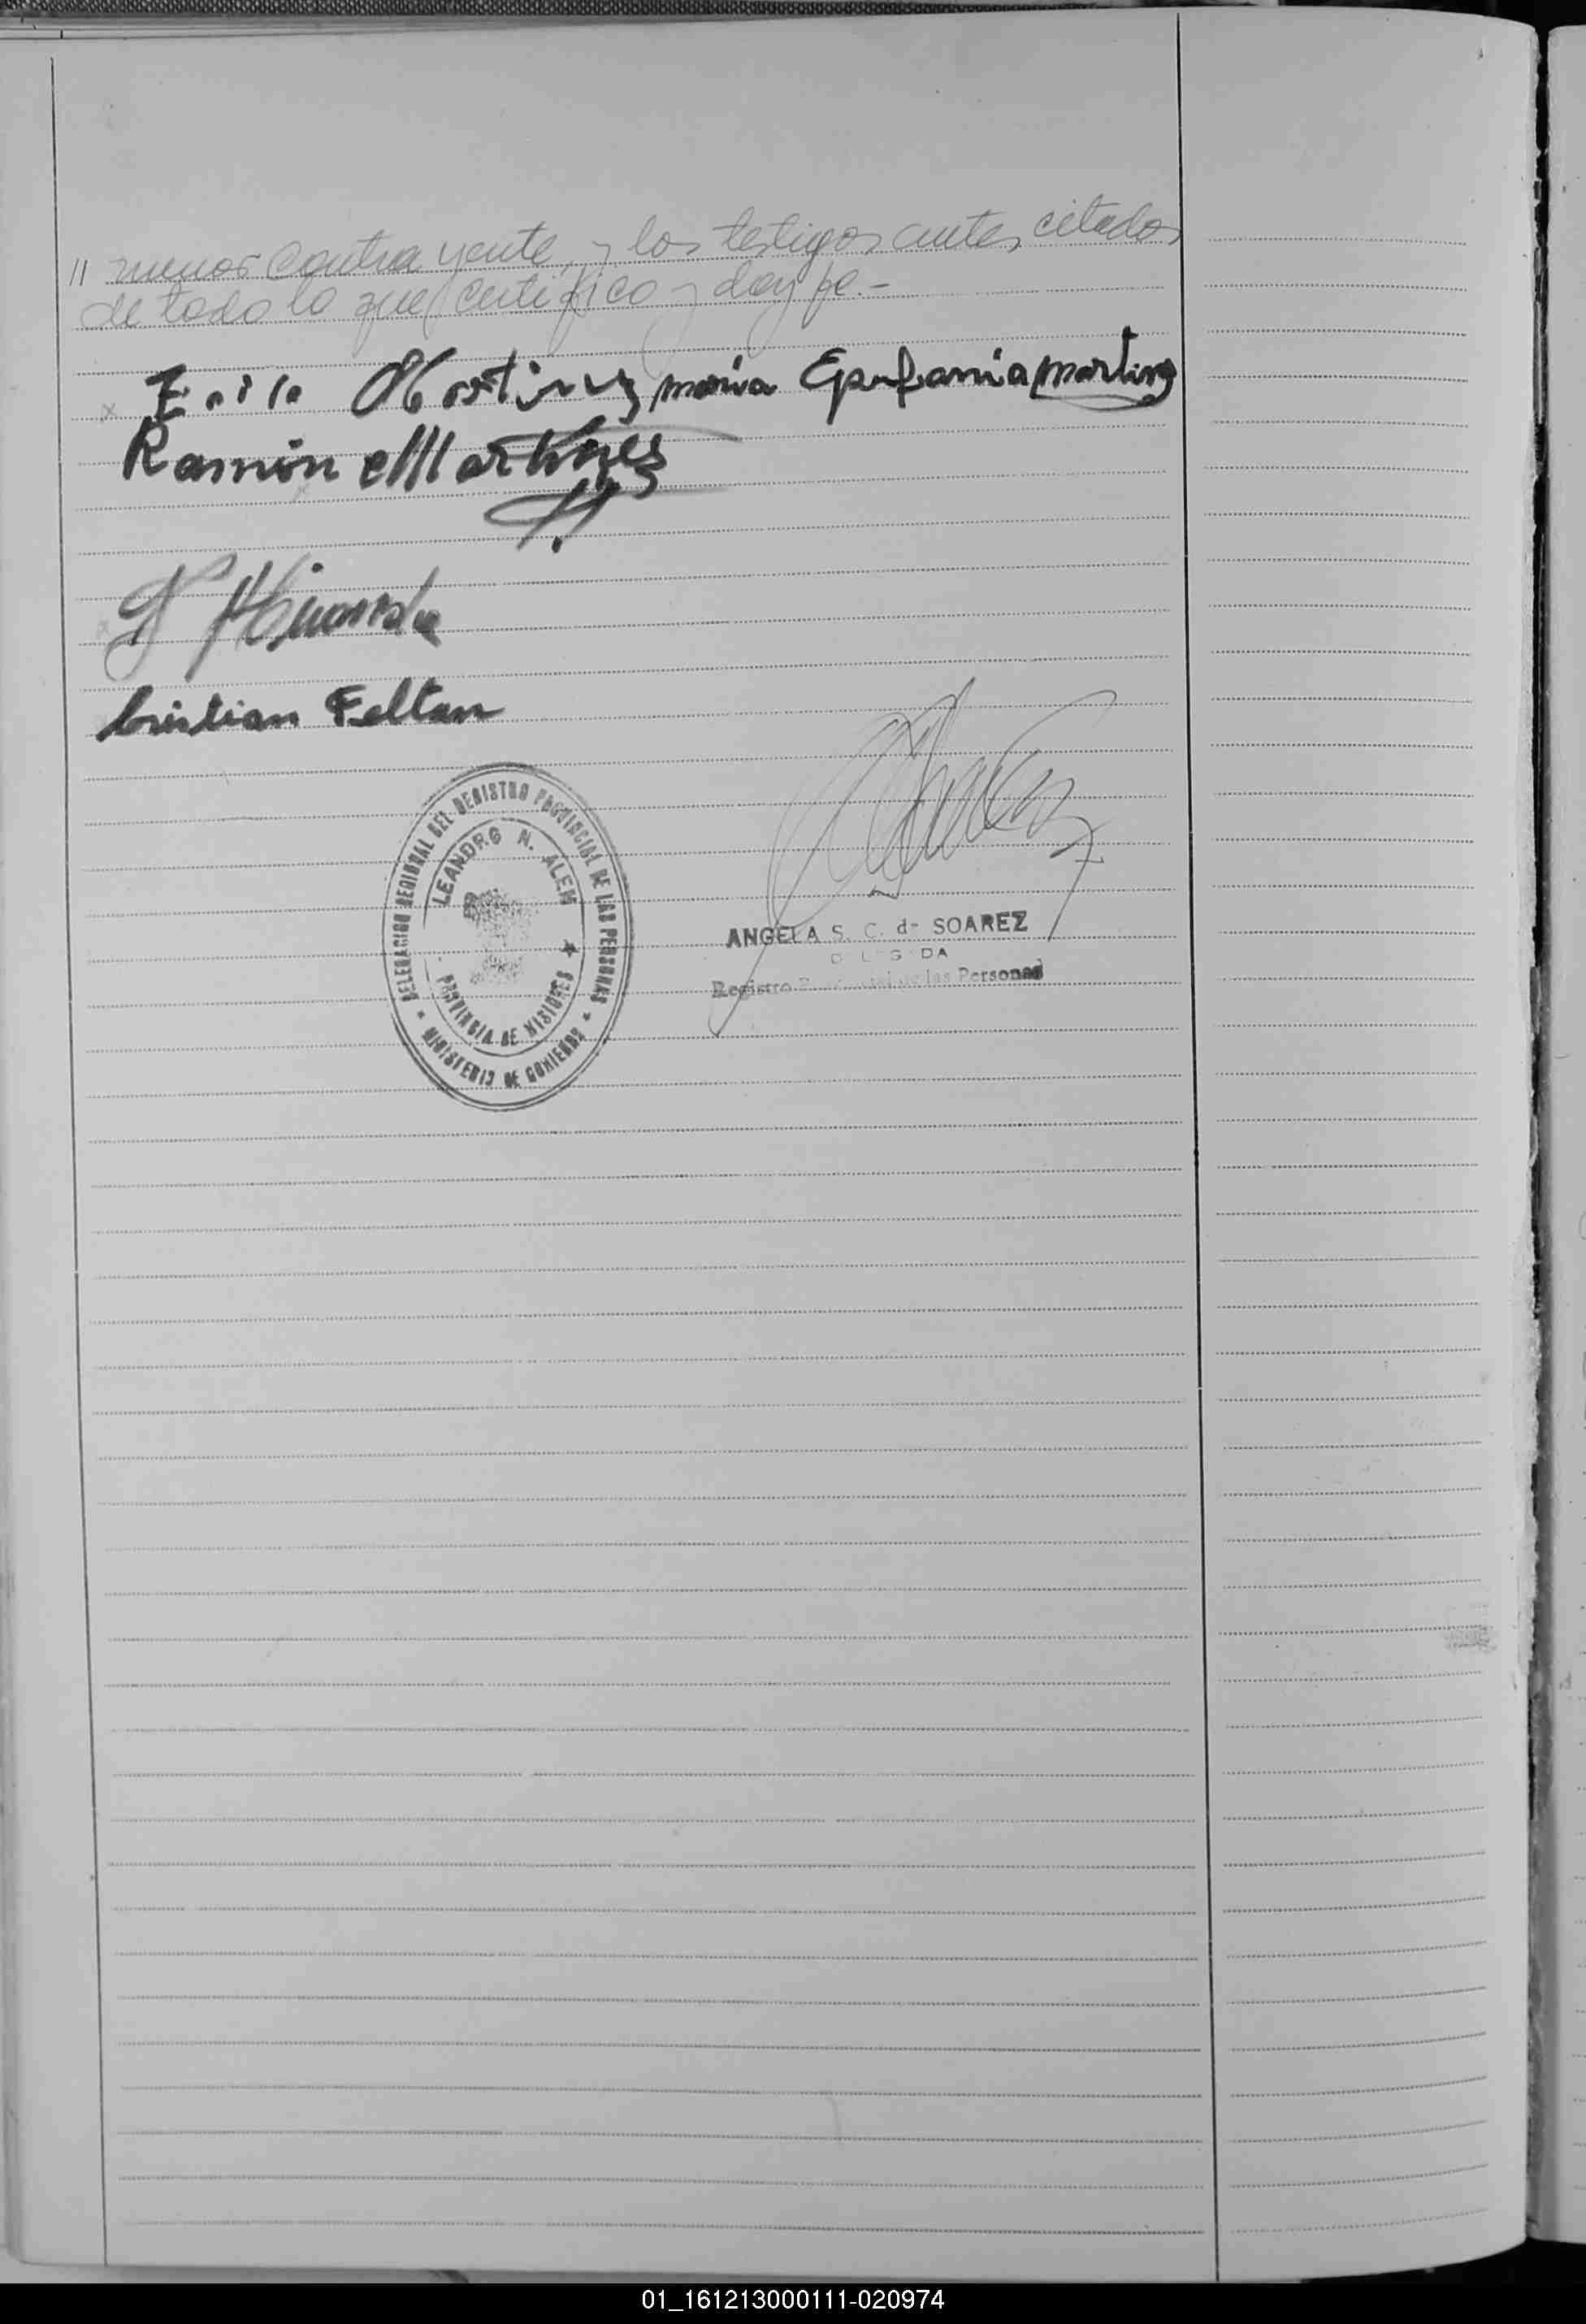 // menor contrayente, y los testigos antes citados
de todo lo que certifico y doy fe.-
Martinez maria Epifania Martinez
Ramón Martinez
Cristian Feltan
DELEGACION REGIONAL DEL REGISTRO PROVINCIAL DE LAS PERSONAS
LEANDRO N. ALEM
PROVINCIA DE MISIONES
* MINISTERIO DE GOBIERNO *
ANGELA S. C. de SOAREZ
Registro de las Personas
01_161213000111-020974